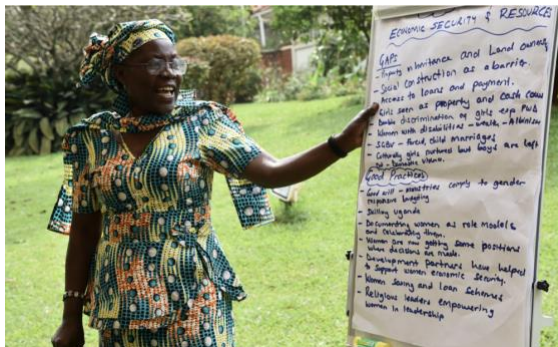 ECONOMIC SECURITY & RESOURCES
GAPS
- Property inheritance and Land ownership
- Social construction as a barrier.
- Access to loans and payment.
Girls seen as property and cash cows
Double discrimination of girls esp PWD
Women with disabilities - Albinism
- SGBV - forced, child marriages
Culturally girls nurtured but boys are left
- Domestic violence.
Good Practices
- Good will - ministries comply to gender
responsive budgeting
- Skilling Uganda
- Documenting women as role models
and celebrating them.
- Women are now getting some positions
where decisions are made.
- Development partners have helped
to support women economic security.
- Women saving and loan schemes
- Religious leaders empowering
women in leadership